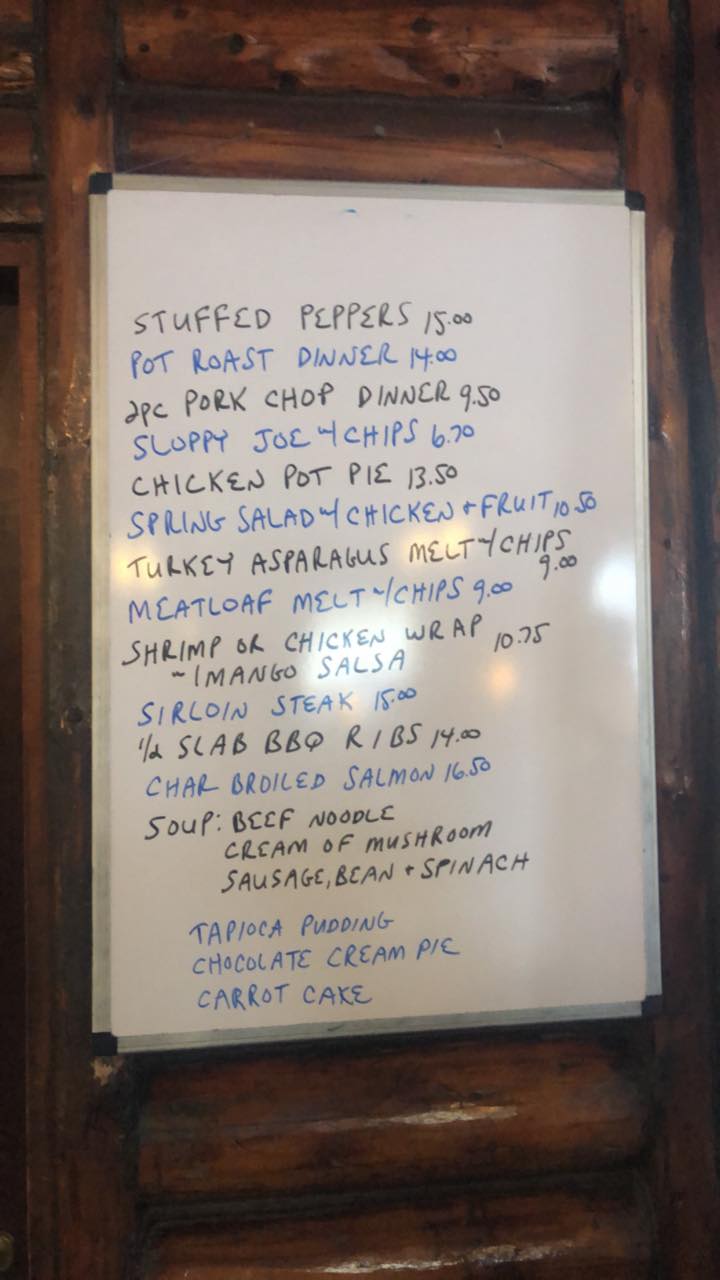 STUFFED PEPPERS 15.00
POT ROAST DINNER 14.00
2PC PORK CHOP DINNER 9.50
SLOPPY JOE W/CHIPS 6.70
CHICKEN POT PIE 13.50
SPRING SALAD W/CHICKEN + FRUIT 10.50
TURKEY ASPARAGUS MELT W/CHIPS
9.00
MEATLOAF MELT W/CHIPS 9.00
SHRIMP OR CHICKEN WRAP 10.75
W/MANGO SALSA
SIRLOIN STEAK 15.00
1/2 SLAB BBQ RIBS 14.00
CHAR BROILED SALMON 16.50
SOUP: BEEF NOODLE
CREAM OF MUSHROOM
SAUSAGE, BEAN + SPINACH
TAPIOCA PUDDING
CHOCOLATE CREAM PIE
CARROT CAKE